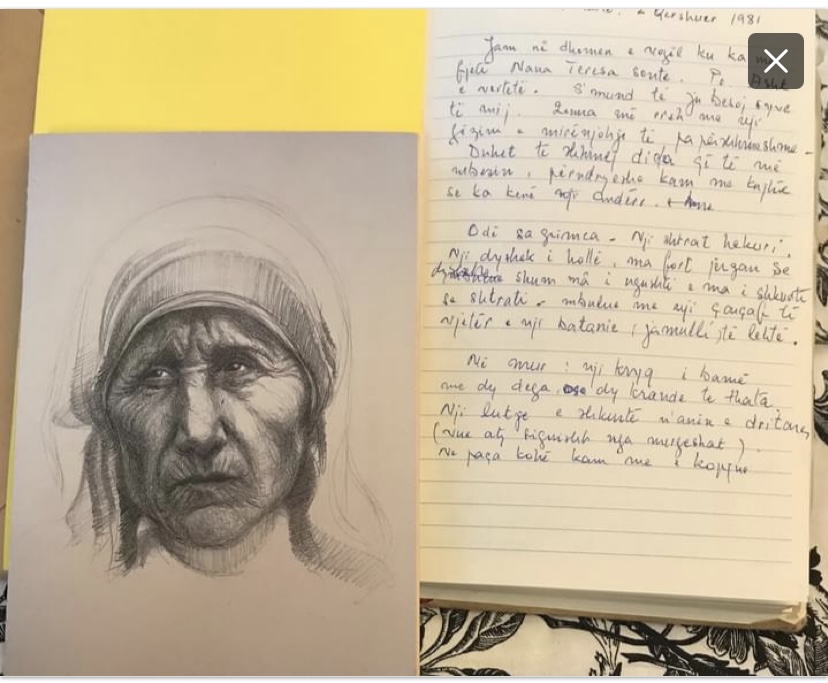 2 Qershuer 1981
Jam në dhomen e vogël ku ka
fjetë Nana Tereza sonte. Po. Asht
e vërtetë. S'mund të ju besoj syve
të mij. Zemra më rreh me nji
gëzim e mirënjohje të papërshkrueshme.
Duhet të shkruej diçka që të më
mbesin, përndryshe kam me kujtue
se ka kenë nji andërr.
Odë sa grimca. Nji shtrat hekuri.
Nji dyshek i hollë, ma fort jorgan se
dyshek shum mâ i ngushtë e ma i shkurtë
se shtrati. mbulue me nji çarçaf të
vjetër e nji batanie jamulli të lehtë.
Në mur: nji kryq i bamë
me dy dega, dy krande të thata
Nji lutje e shkurtë n'anën e dritares
(vue aty sigurisht nga murgeshat).
Në paça kohë kam me e kopjue